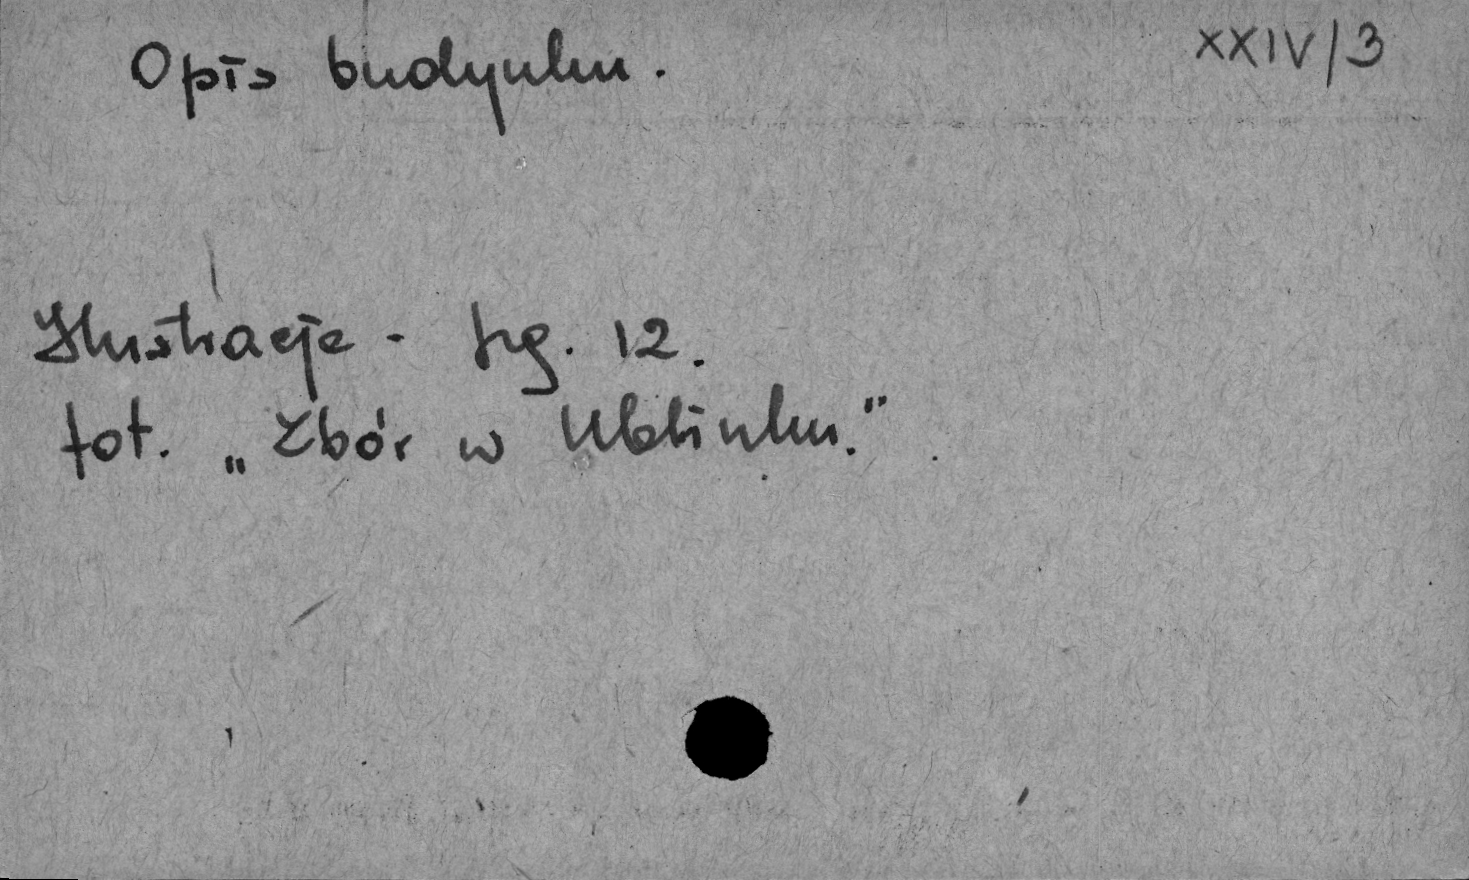 Opis budynku. XXIV/3
Ilustracje - fig. 12.
fot. „Zbór w Ublinku."